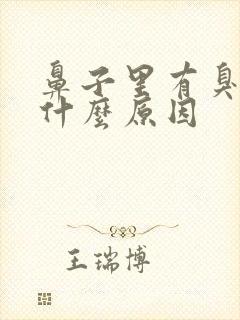 鼻子里有臭
什麼原因
王瑞博